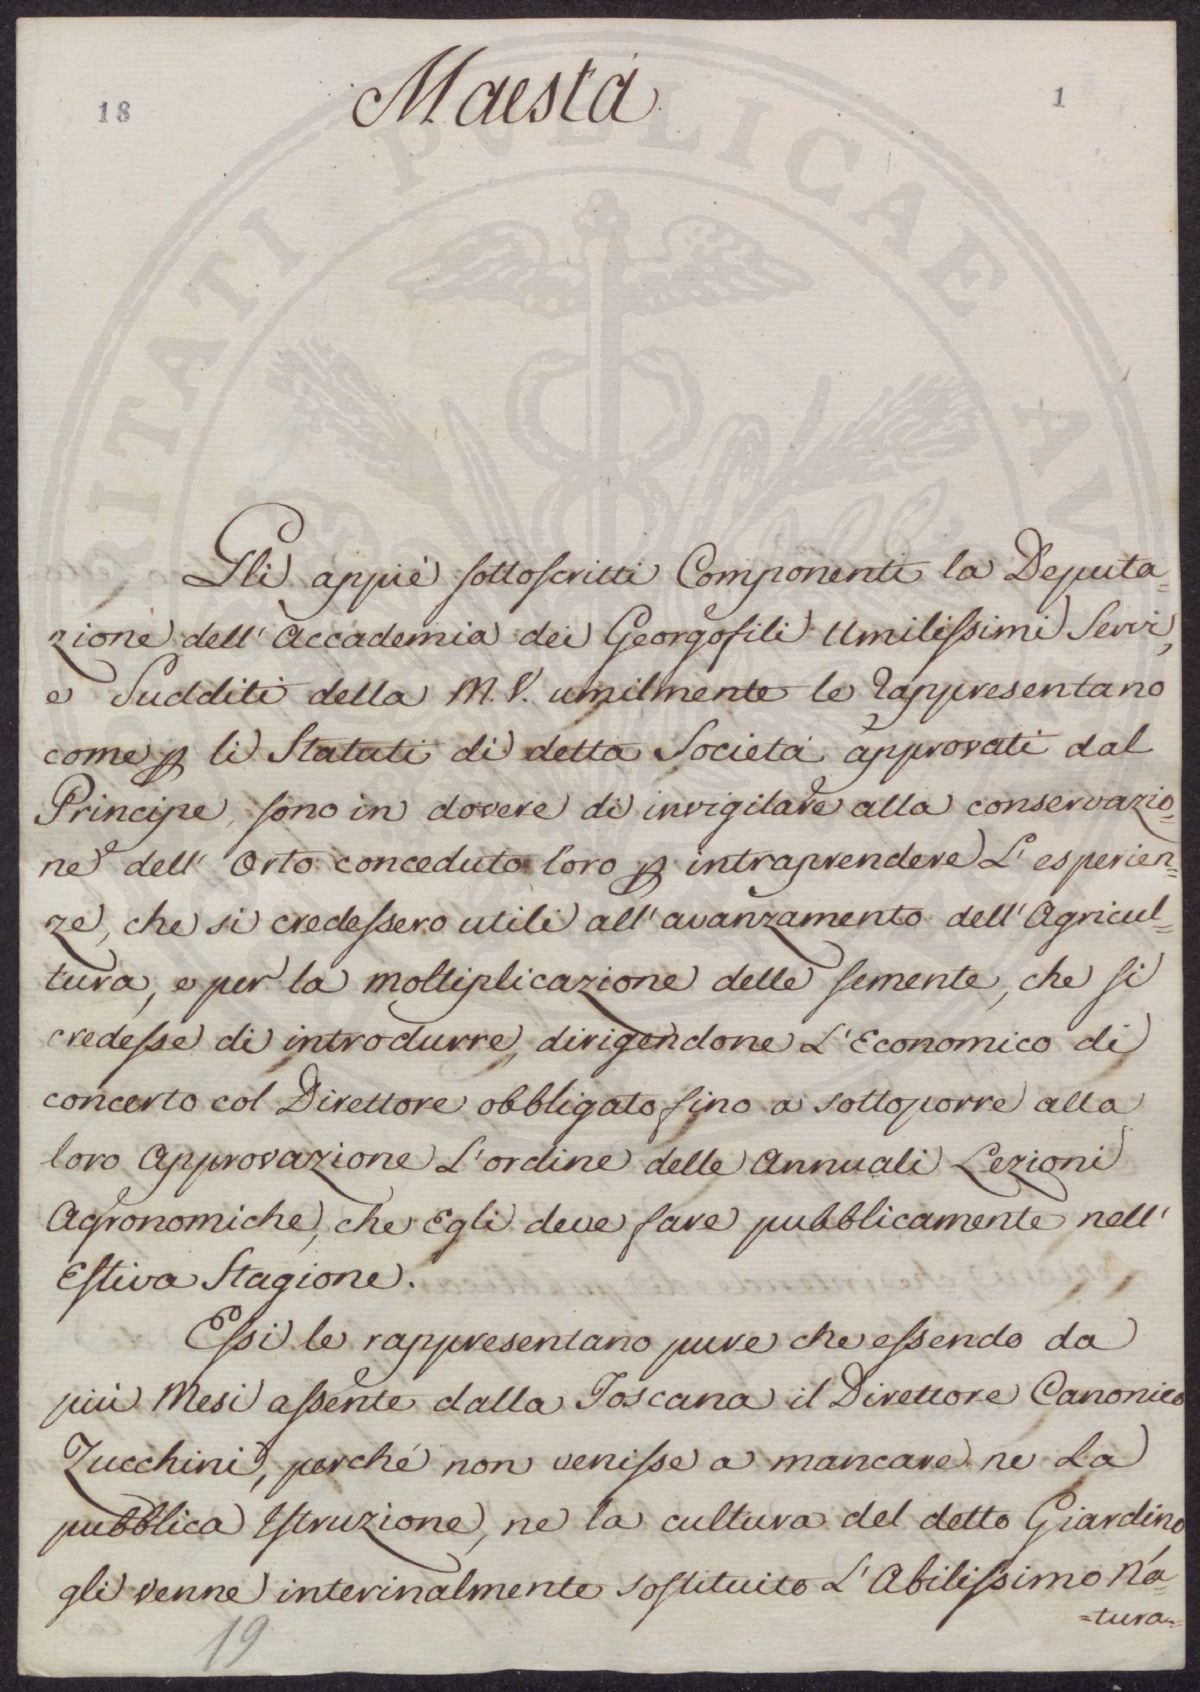 18
1
Maestà
Gli appiè sottoscritti Componenti la Deputa=
zione dell' Accademia dei Georgofili Umilissimi Servi,
e Sudditi della M. V. umilmente le rappresentano
come ꝑ li Statuti di detta Società approvati dal
Principe, sono in dovere di invigilare alla conservazio=
ne dell' Orto conceduto loro ꝑ intraprendere L' esperien=
ze, che si credessero utili all' avanzamento dell' Agricul=
tura, e per la moltiplicazione delle semente, che si
credesse di introdurre, dirigendone L' Economico di
concerto col Direttore obbligato fino a sottoporre alla
loro Approvazione L' ordine delle Annuali Lezioni
Agronomiche, che Egli deve fare pubblicamente nell'
Estiva Stagione.
Essi le rappresentano pure che essendo da
più Mesi assente dalla Toscana il Direttore Canonico
Zucchini, perché non venisse a mancare ne La
pubblica Istruzione, ne la cultura del detto Giardino
gli venne interinalmente sostituito L' Abilissimo Na=
=tura=
19